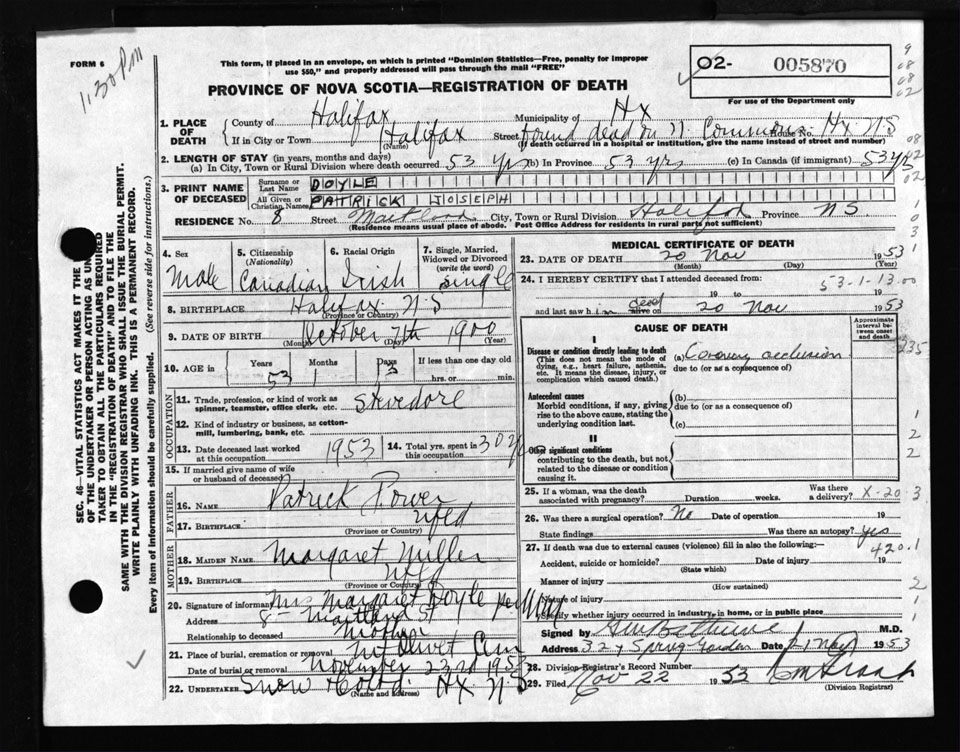 FORM 6
1:30 PM
This form, if placed in an envelope, on which is printed "Dominion Statistics—Free, penalty for improper
use $50," and properly addressed will pass through the mail "FREE"
PROVINCE OF NOVA SCOTIA—REGISTRATION OF DEATH
O2- 005870
For use of the Department only
9
08
08
02
1. PLACE OF DEATH
County of Halifax Municipality of Hx
If in City or Town Halifax Street found dead on N. Commons House No. Hx NS
(Name) (If death occurred in a hospital or institution, give the name instead of street and number)
08
2. LENGTH OF STAY (in years, months and days)
(a) In City, Town or Rural Division where death occurred 53 yrs (b) In Province 53 yrs (c) In Canada (if immigrant) 53 yrs
02
02
3. PRINT NAME OF DECEASED
Surname or Last Name DOYLE
All Given or Christian Names PATRICK JOSEPH
RESIDENCE No. 8 Street Maitland City, Town or Rural Division Halifax Province NS
(Residence means usual place of abode. Post Office Address for residents in rural parts not sufficient)
1
0
3
4. Sex Male
5. Citizenship (Nationality) Canadian
6. Racial Origin Irish
7. Single, Married, Widowed or Divorced (write the word) Single
8. BIRTHPLACE Halifax N.S
(Province or Country)
9. DATE OF BIRTH October 7th 1900
(Month) (Day) (Year)
10. AGE in Years 53 Months 1 Days 13 If less than one day old hrs. or min.
OCCUPATION
11. Trade, profession, or kind of work as
spinner, teamster, office clerk, etc. Stevedore
12. Kind of industry or business, as cotton-
mill, lumbering, bank, etc.
13. Date deceased last worked at this occupation 1953
14. Total yrs. spent in this occupation 30 yrs
15. If married give name of wife
or husband of deceased
FATHER
16. NAME Patrick Power
17. BIRTHPLACE Nfld
(Province or Country)
MOTHER
18. MAIDEN NAME Margaret Miller
19. BIRTHPLACE Nfld
(Province or Country)
20. Signature of informant Mrs Margaret Doyle per
Address 8 Maitland St
Relationship to deceased Mother
21. Place of burial, cremation or removal Mt Olivet Cem
Date of burial or removal November 23rd 1953
22. UNDERTAKER Snow & Co Ltd. Hx. N.S
(Name and address)
MEDICAL CERTIFICATE OF DEATH
23. DATE OF DEATH 20 Nov 1953
(Month) (Day) (Year)
1
24. I HEREBY CERTIFY that I attended deceased from:
19 to 19
53-1-13.00
and last saw him dead alive on 20 Nov 1953
CAUSE OF DEATH
Approximate interval between onset and death
I
Disease or condition directly leading to death
(This does not mean the mode of
dying, e.g., heart failure, asthenia,
etc. It means the disease, injury, or
complication which caused death.)
(a) Coronary occlusion
due to (or as a consequence of)
235
Antecedent causes
Morbid conditions, if any, giving
rise to the above cause, stating the
underlying condition last.
(b)
due to (or as a consequence of)
(c)
1
2
2
II
Other significant conditions
contributing to the death, but not
related to the disease or condition
causing it.
25. If a woman, was the death
associated with pregnancy? Duration weeks. Was there a delivery? X-20 3
26. Was there a surgical operation? No Date of operation 19
State findings Was there an autopsy? Yes
27. If death was due to external causes (violence) fill in also the following:—
420.1
Accident, suicide or homicide? Date of injury 19
(State which)
Manner of injury 2
(How sustained)
Nature of injury 1
Specify whether injury occurred in industry, in home, or in public place
1
Signed by M.D.
Address 324 Spring Garden Date 21 Nov 1953
28. Division Registrar's Record Number
29. Filed Nov 22 1953
(Division Registrar)
SEC. 46—VITAL STATISTICS ACT MAKES IT THE
OF THE UNDERTAKER OR PERSON ACTING AS UN
TAKER TO OBTAIN ALL THE PARTICULARS REQUIRED
IN THE "REGISTRATION OF DEATH" AND TO FILE THE
SAME WITH THE DIVISION REGISTRAR WHO SHALL ISSUE THE BURIAL PERMIT.
WRITE PLAINLY WITH UNFADING INK. THIS IS A PERMANENT RECORD.
Every item of information should be carefully supplied. (See reverse side for instructions.)